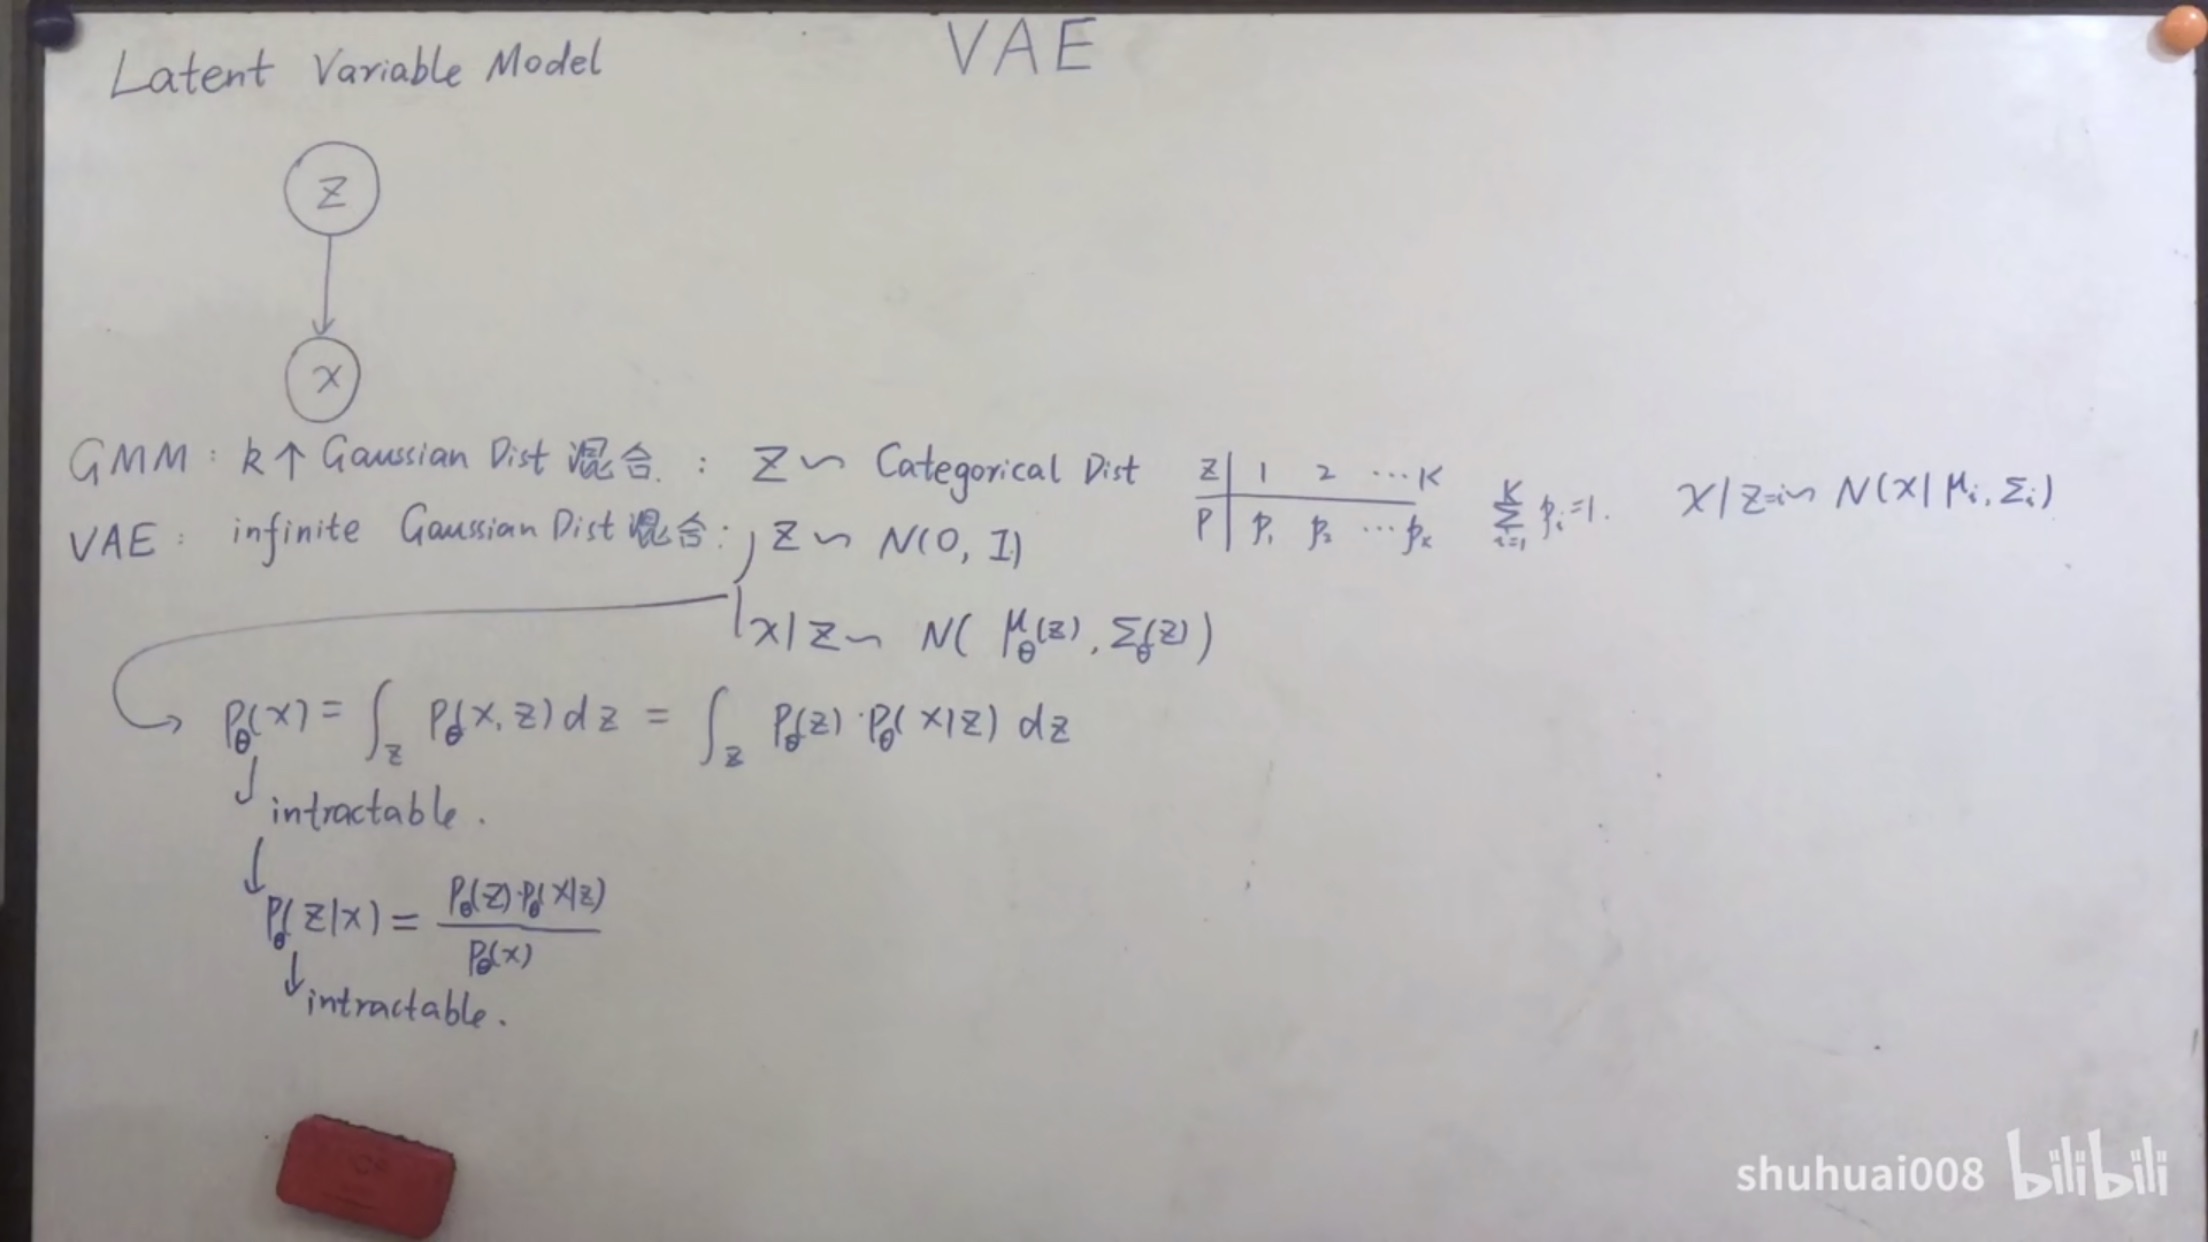 VAE
Latent Variable Model
z
x
GMM : k个 Gaussian Dist 混合. : z ~ Categorical Dist
z | 1 2 ... K
P | p₁ p₂ ... pₖ
∑ᵢ₌₁ᴷ pᵢ = 1.
x|z=i ~ N(x|μᵢ, Σᵢ)
VAE : infinite Gaussian Dist 混合 : z ~ N(0, I)
x|z ~ N( μ_θ(z), Σ_θ(z) )
P_θ(x) = ∫_z P_θ(x, z) dz = ∫_z P_θ(z) · P_θ(x|z) dz
↓ intractable.
↓ P_θ(z|x) = P_θ(z)·P_θ(x|z) / P_θ(x)
↓ intractable.
shuhuai008 bilibili